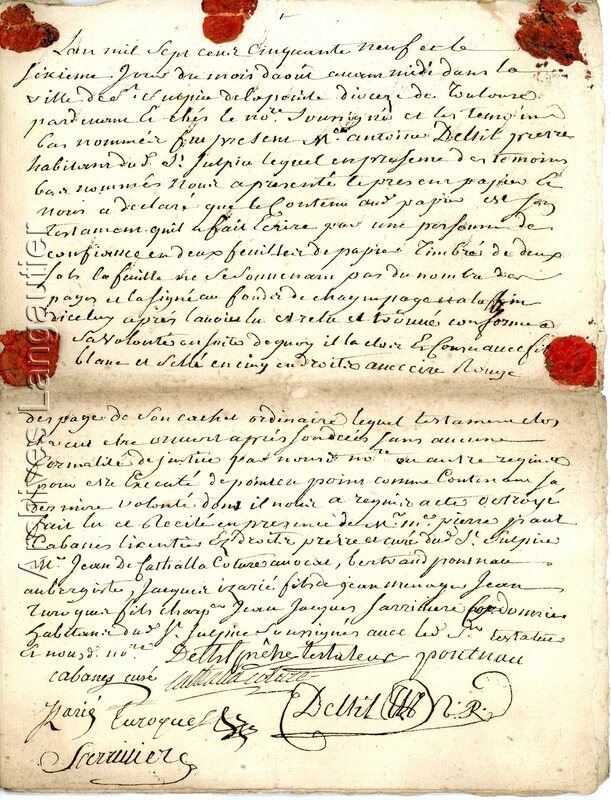 Lan mil sept cens cinquante neuf et le
sixieme Jour du mois daout avam midi dans la
ville de St. Sulpice dela pointe dioceze de Toulouse
pardevant et ches le nore. Soussigné et les temoins
bas nommés fut present Mre antoine Deltil pretre
habitant dud. St. Sulpice lequel en presence des temoins
bas nommés Nous a presenté le present papier Et
nous a declaré que le Contenu aud. papier est son
testament quil a fait Ecrire par une personne de
confiance en deux feuilles de papier Timbrés de deux
sols la feuille ne se souvenam pas du nombre des
pages et la signé au fonds de chaque page et a la fin
diceluy après lavoir lu et relu et trouvé conforme a
sa volonté en suite de quoy il la clos Et Cousu avec fil
blanc et sellé en cinq endroits avec cire Rouge
des page de son cachet ordinaire lequel testament clos
Et veut etre ouvert après son deces sans aucune
formalité de justice par nousd. nore ou autre requis
pour etre Executé de point en point comme Contenam sa
derniere volonté dont il nous a requis acte octroyé
fait lu et Recité en presence de Mre. pierre paul
Cabanes licentié Ez droits pretre et curé dud. St. Sulpice
Mr. Jean de Castralla Coture avocat, bertrand ponsnau
aubergiste, Jacques izarié fils de jean menager Jean
turoque fils charpr. Jean Jacques Sarriniere
habitans dud. St. Sulpice Soussignés avec led. Sr. testateur
Et nousd. nore.
Deltil prêtre testateur ponsnau
cabanes curé
Izarié turoque Deltil N. R.
Sarriniere
Archives Langautier